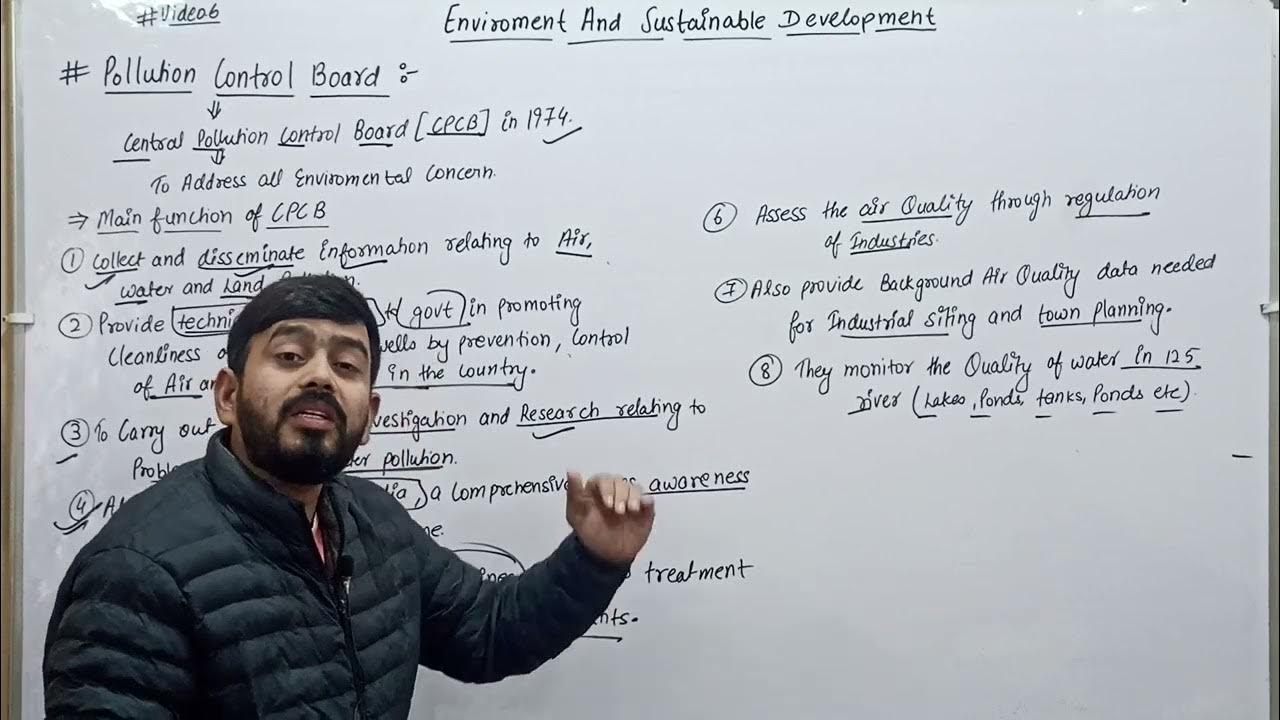 #Video6
Enviroment And Sustainable Development
# Pollution Control Board :-
⇓
Central Pollution Control Board [CPCB] in 1974.
⇓
To Address all Enviromental Concern.
⇒ Main function of CPCB
① Collect and disseminate information relating to Air,
water and Land
② Provide govt in promoting
Cleanliness by prevention, Control
of Air in the country.
③ To Carry out and Research relating to
pollution.
④ a Comprehensive awareness
treatment
⑥ Assess the air Quality through regulation
of Industries.
⑦ Also provide Background Air Quality data needed
for Industrial siting and town planning.
⑧ They monitor the Quality of water in 125
river (Lakes, Ponds, tanks, Ponds etc).